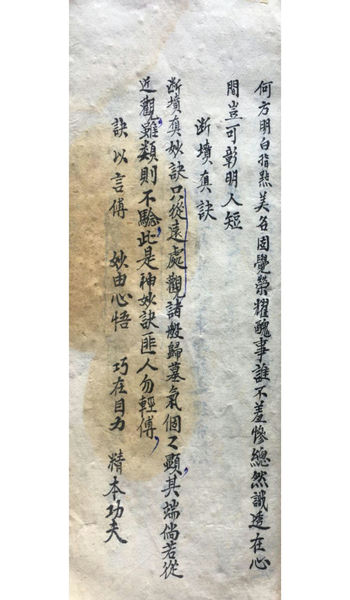 何方明白指點美名固覺榮耀醜事誰不羞慘總然識造在心
間豈可彰明人短
斷墳真訣
斷墳真妙訣只從遠處觀諸般歸墓氣個々顯其端倘若從
近觀雖類則不驗此是神妙訣匪人勿輕傳
訣以言傳 妙由心悟 巧在目力 精本功夫